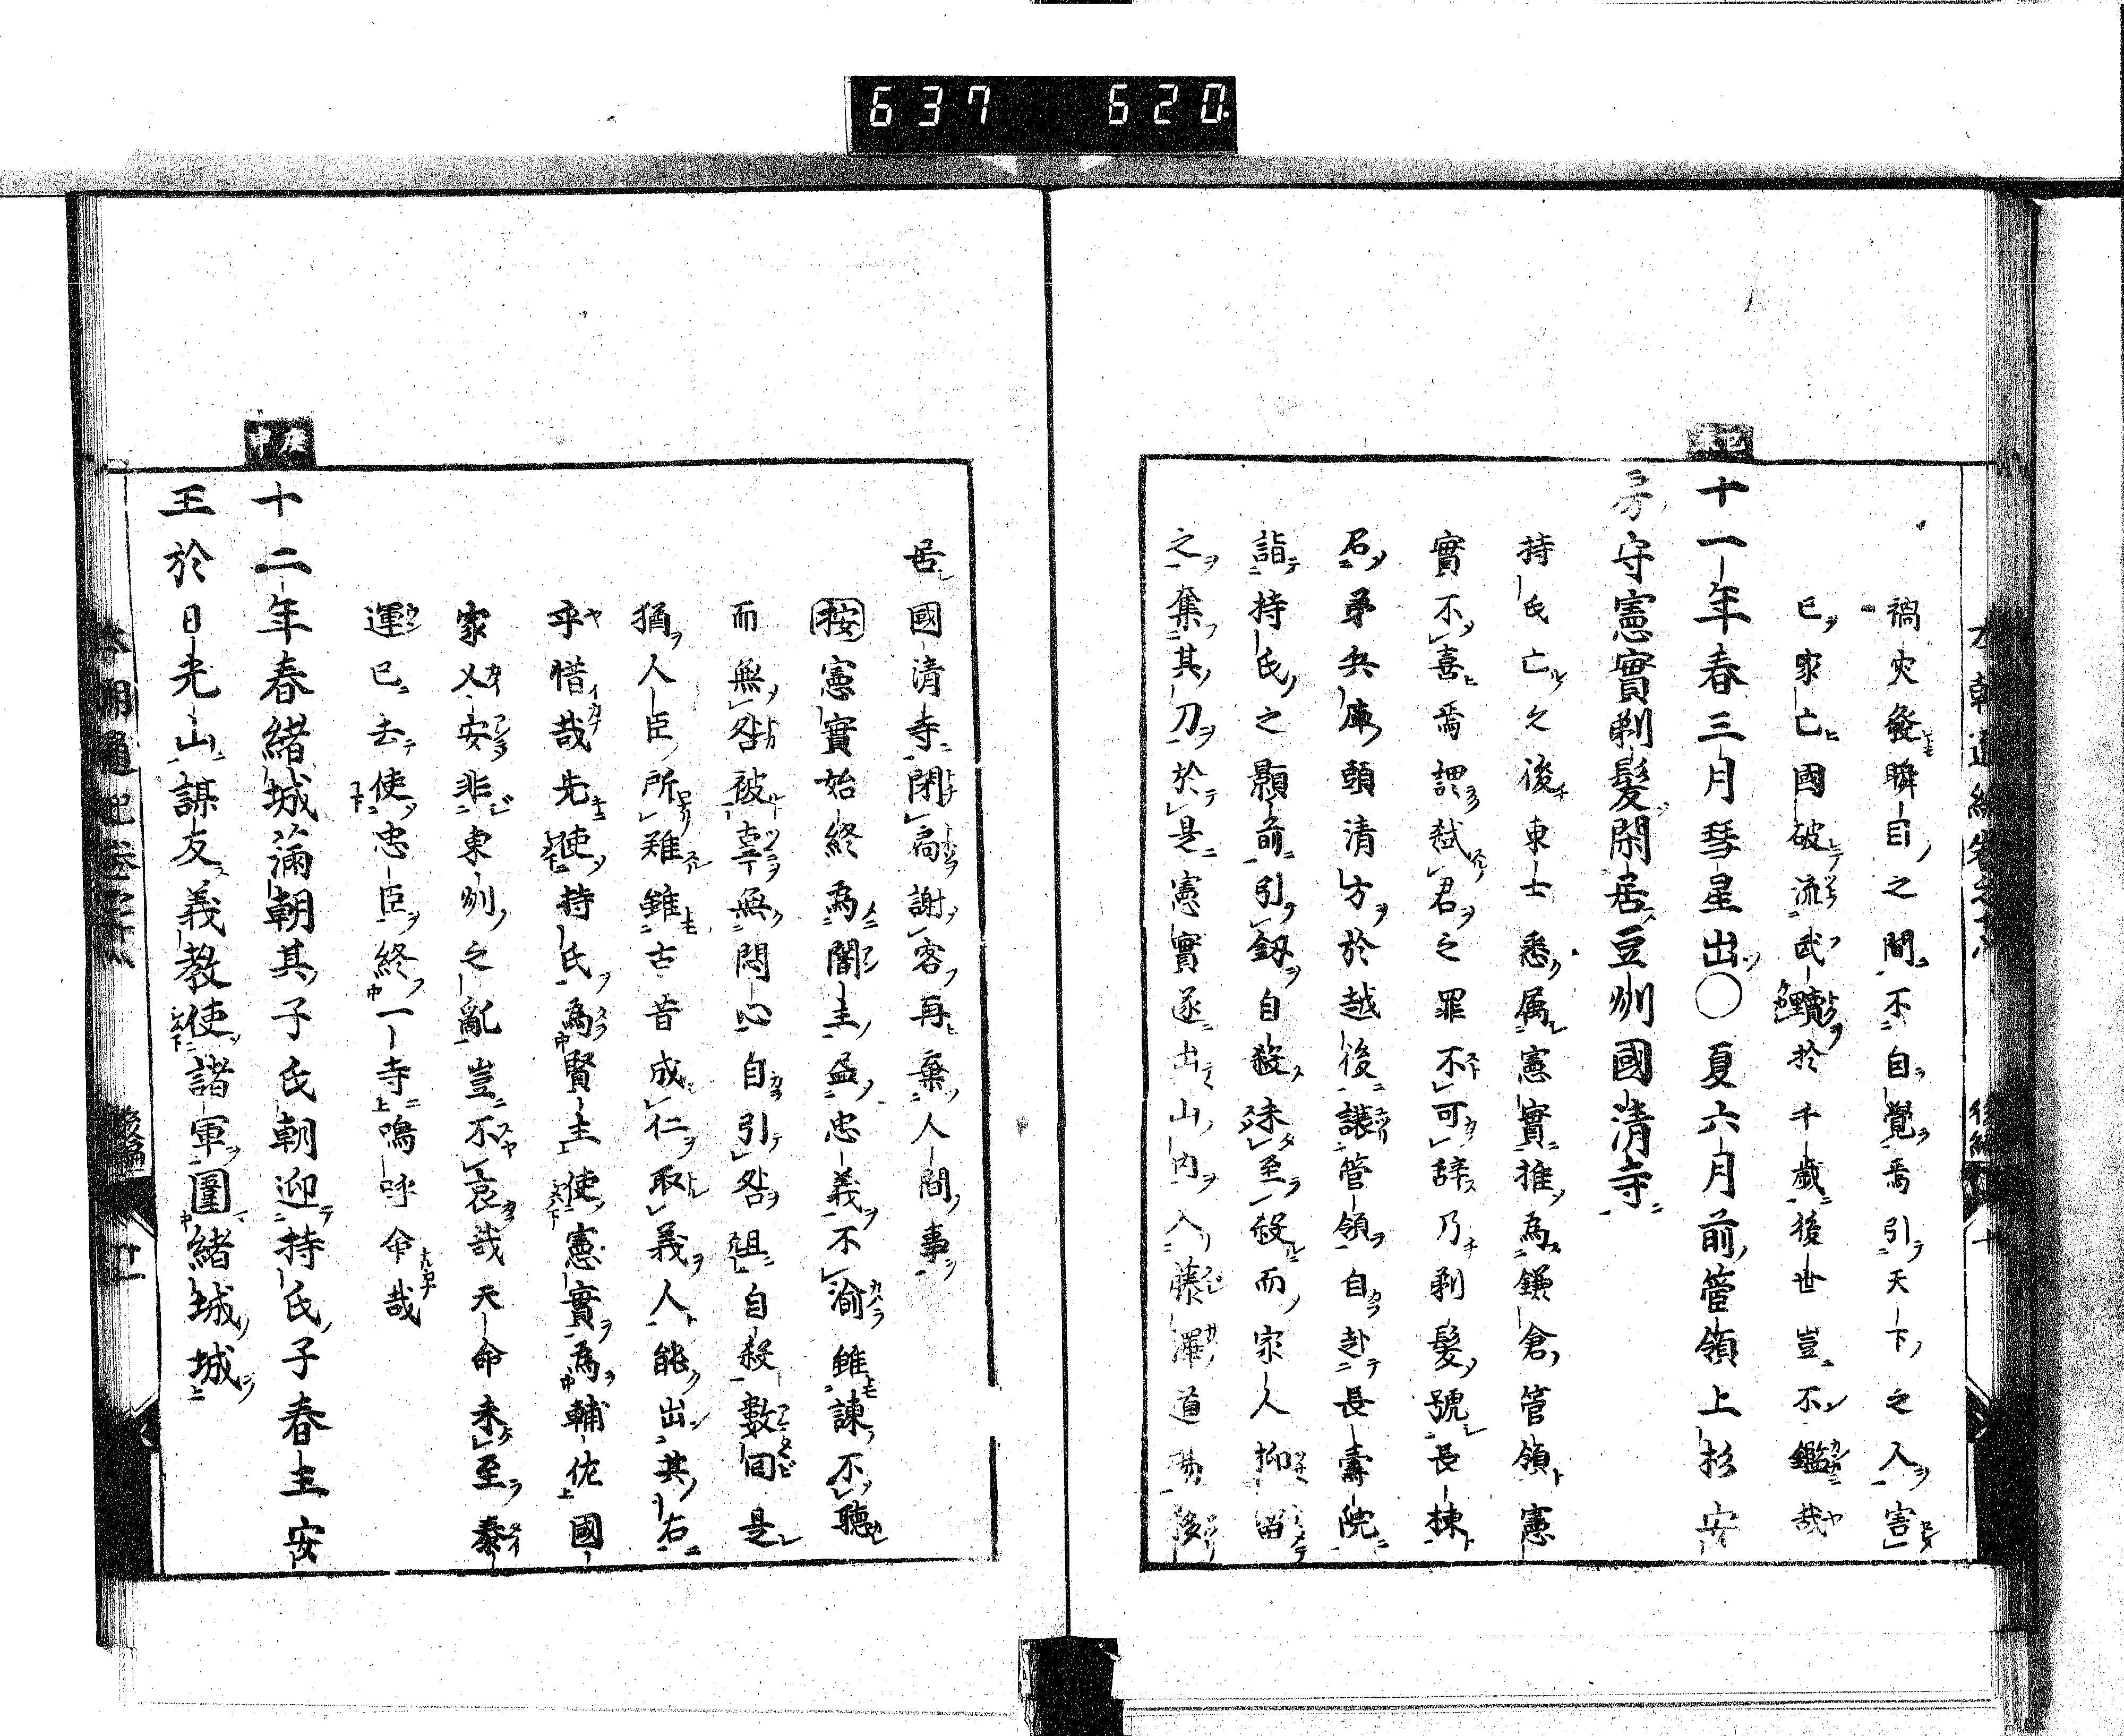 637 620
禍灾發瞬目之間不自覺焉引天下之人害
已家亡國破流武於千歳後世豈不鑑哉
己未
十一年春三月彗星出〇夏六月前管領上杉安
房守憲實剃髮閑居豆州國清寺
持氏亡之後東士悉属憲實推為鎌倉管領憲
實不喜焉謂弑君之罪不可辞乃剃髮號長棟
召弟兵庫頭清方於越後譲管領自赴長壽院
詣持氏之顯前引釼自殺未至殺而家人抑留
之奪其刀於是憲實遂出山内入藤澤道場後
居國清寺閉高謝客再棄人間事
按憲實始終為闇主益忠義不渝雖諫不聽
而無咎被辜無悶心自引咎沮自殺數回是
猶人臣所難雖古昔成仁取義人能出其右
乎惜哉先使持氏為賢主使憲實為輔佐國
家乂安非東州之亂豈不哀哉天命未至泰
運已去使忠臣終一寺嗚呼命哉
庚申
十二年春緒城滿朝其子氏朝迎持氏子春主安
王於日光山謀友義教使諸軍圍緒城城